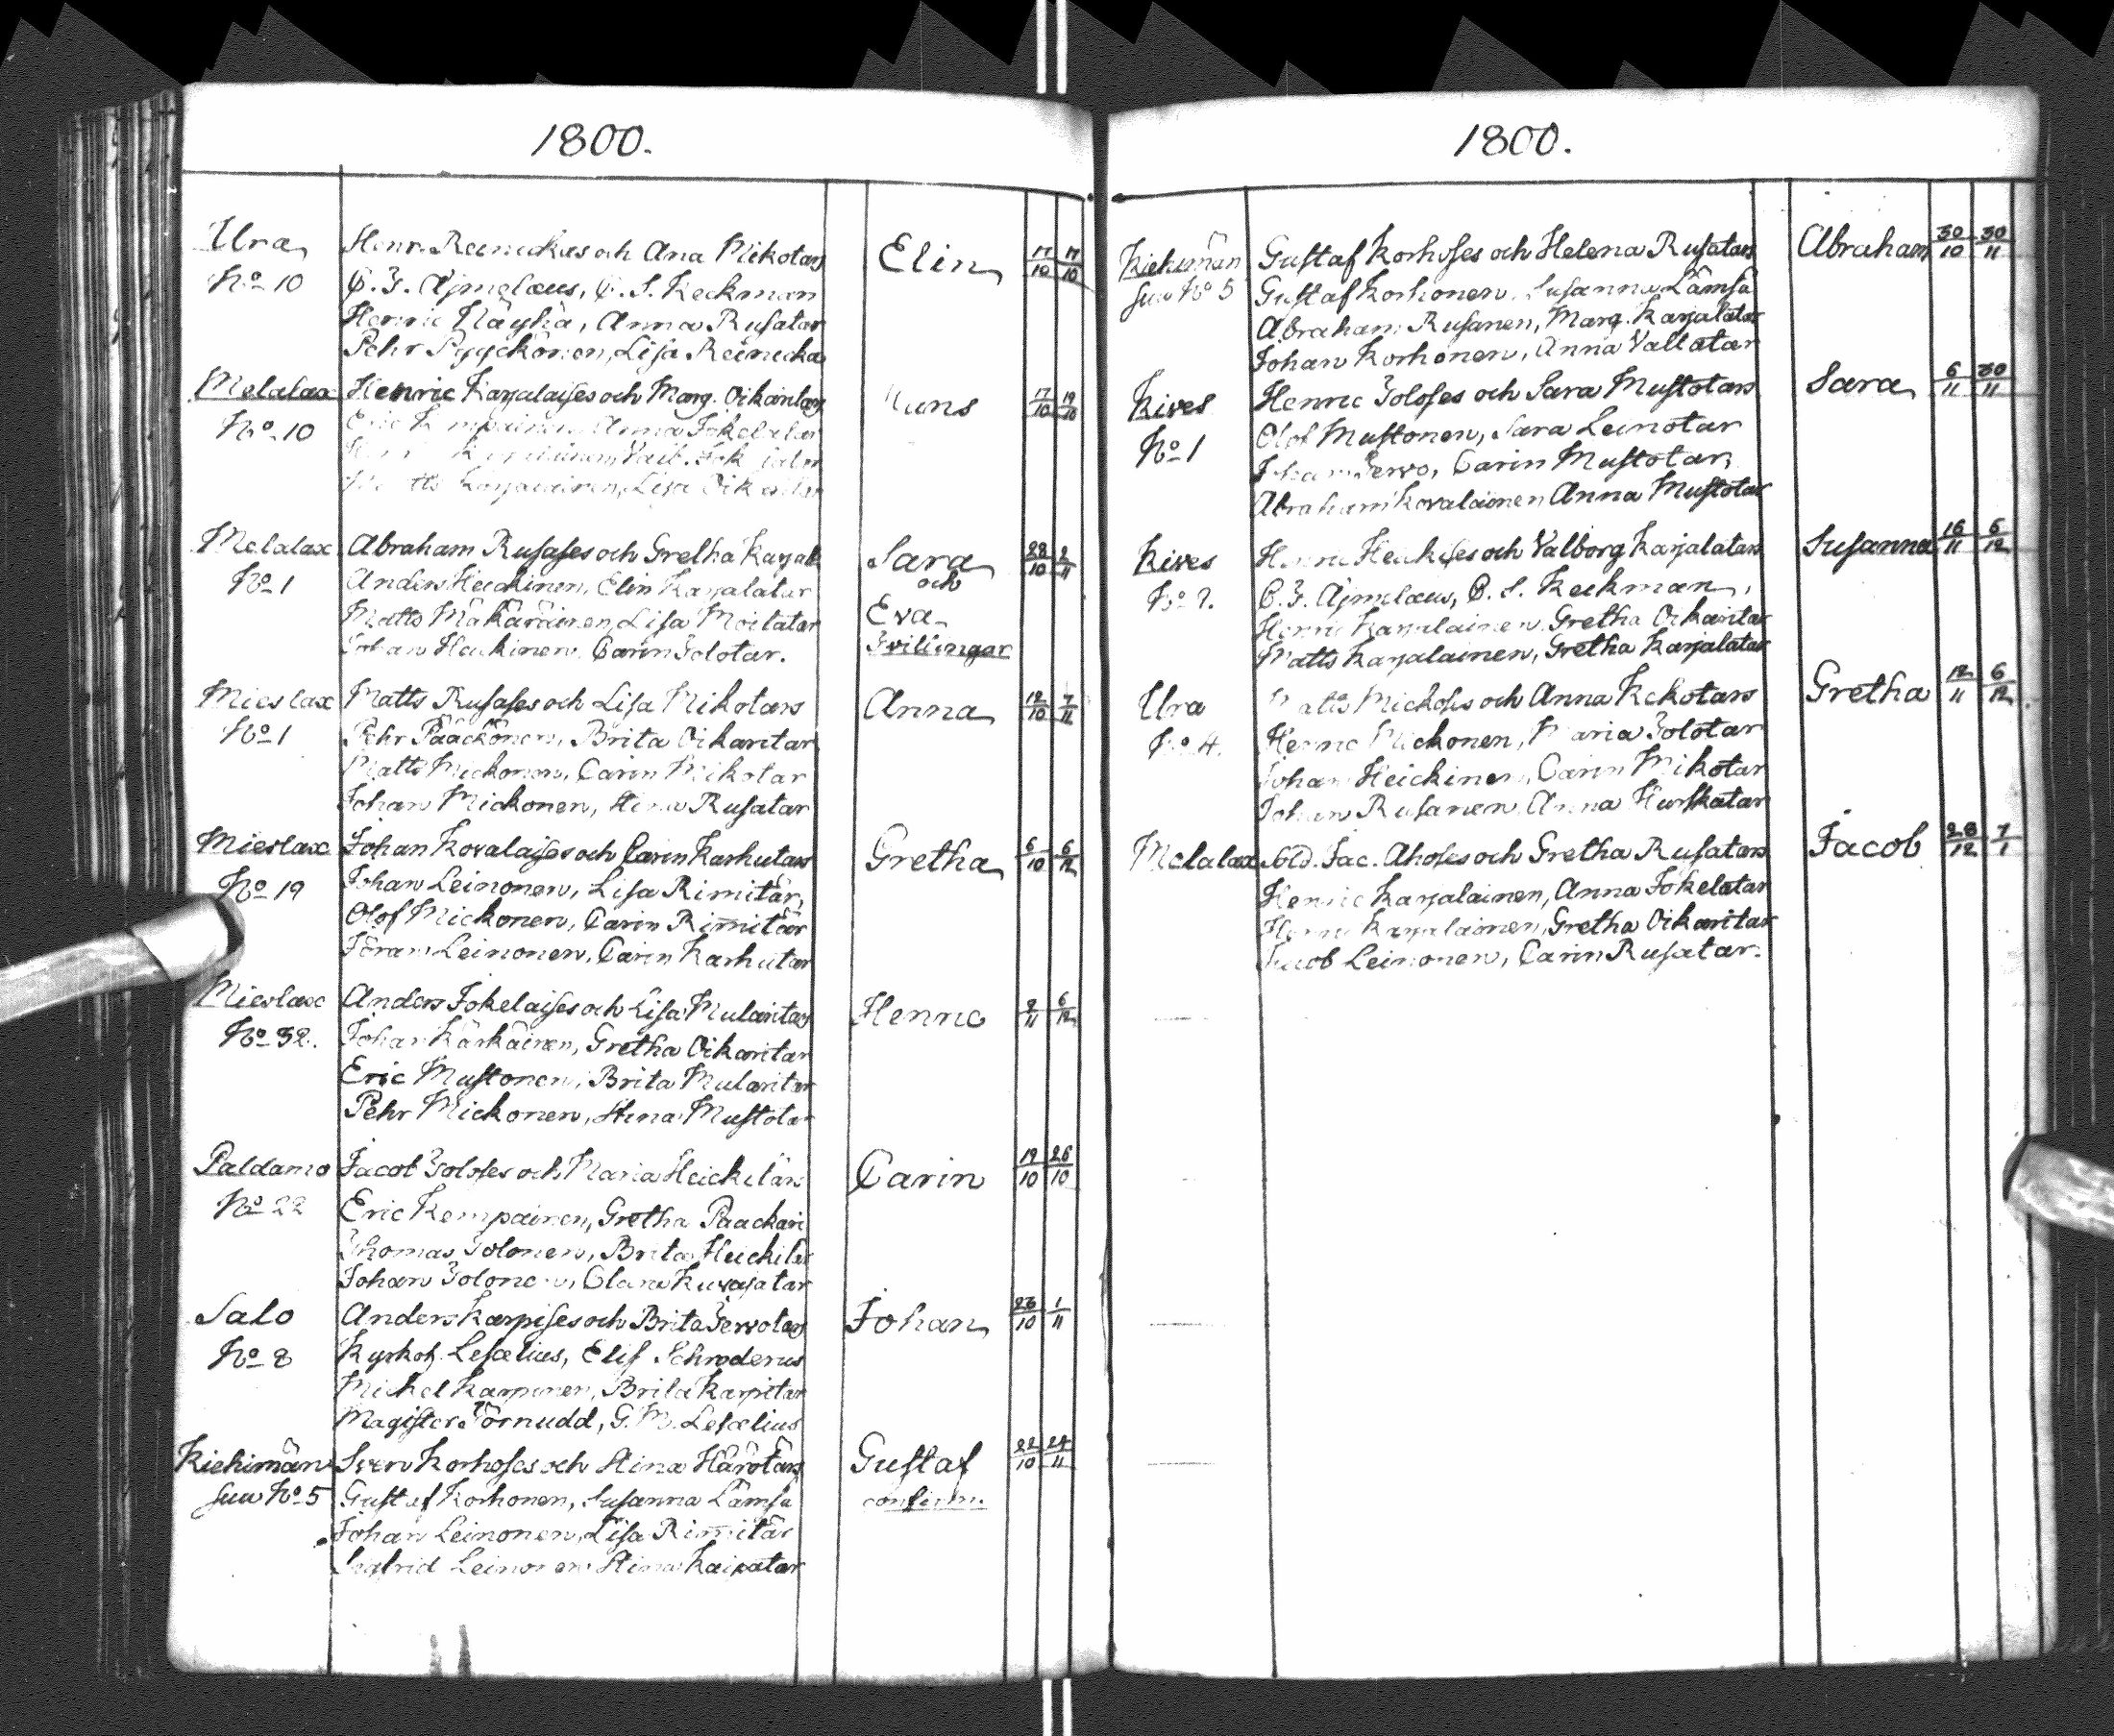 1800.
Ura
No 10
Henr. Reinickas och Ana Mikotars
C. F. Ajmelaeus, C. S. Keckman
Henric Näyhä, Anna Rusatar
Pehr Pyyckönen, Lisa Reinicka
Elin
17/10 17/10
Melalax
No 10
Henric Karjalaises och Marg. Oikaritars
Anna Jokelatar
Karjalainen, Lisa Oikaritar
Huns
17/10 19/10
Melalax
No 1
Abraham Rusases och Gretha Karjalat
Anders Heickinen, Elin Karjalatar
Matts Mäkäräinen, Lisa Moilatar
Johan Heickinen, Carin Tolotar.
Sara
och
Eva
Tvillingar
28/10 2/11
Mieslax
No 1
Matts Rusases och Lisa Mikotars
Pehr Pääckönen, Brita Oikaritar
Matts Mickonen, Carin Mikotar
Johan Mickonen, Stina Rusatar
Anna
12/10 7/11
Mieslax
No 19
Johan Kovalaises och Carin Karhutars
Johan Leinonen, Lisa Rimitär,
Olof Mickonen, Carin Rimitär
Jöran Leinonen, Carin Karhutar
Gretha
6/10 6/12
Mieslax
No 32.
Anders Jokelaises och Lisa Mularitars
Johan Kärkäinen, Gretha Oikaritar
Eric Mustonen, Brita Mularitar
Pehr Mickonen, Stina Mustotar
Henric
2/11 6/12
Paldamo
No 22
Jacob Toloses och Maria Heickilän
Eric Kempainen, Gretha Paackari
Thomas Tolonen, Brita Heickilä
Johan Tolonen, Clara Kuvajatar
Carin
19/10 26/10
Salo
No 8
Anders Karpises och Brita Tervotars
Kyrkoh. Lesaelius, Elis. Schroderus
Michel Karpinen, Brita Karpitar
Magister Törnudd, G. M. Lesaelius
Johan
23/10 1/11
Kiehimän
suu No 5
Sven Korhoses och Stina Härötärs
Gustaf Korhonen, Susanna Lämsä
Johan Leinonen, Lisa Rimitär
Sigfrid Leinonen Stina Kaipatar
Gustaf
confirm.
22/10 24/11
1800.
Kiehimän
suu No 5
Gustaf Korhoses och Helena Rusatars
Gustaf Korhonen, Susanna Lämsä
Abraham Rusanen, Marg. Karjalatar
Johan Korhonen, Anna Vallatar
Abraham
30/10 30/11
Kives
No 1
Henric Toloses och Sara Mustotars
Olof Mustonen, Sara Leinotar
Johan Tervo, Carin Mustotar,
Abraham Kovalainen Anna Mustotar
Sara
6/11 30/11
Kives
No 2.
Henric Heickises och Valborg Karjalatars
C. F. Ajmelaeus, C. S. Keckman,
Henric Karjalainen, Gretha Oikaritar
Matts Karjalainen, Gretha Karjalatar
Susanna
16/11 6/12
Ura
No 4.
Matts Mickoses och Anna Kekotars
Henric Mickonen, Maria Tolotar
Johan Heickinen, Carin Mikotar
Johan Rusanen Anna Hurskatar
Gretha
12/11 6/12
Melalax
Sold. Jac. Ahoses och Gretha Rusatars
Henric Karjalainen, Anna Jokelatar
Henric Karjalainen, Gretha Oikaritar
Jacob Leinonen, Carin Rusatar.
Jacob
28/12 7/1